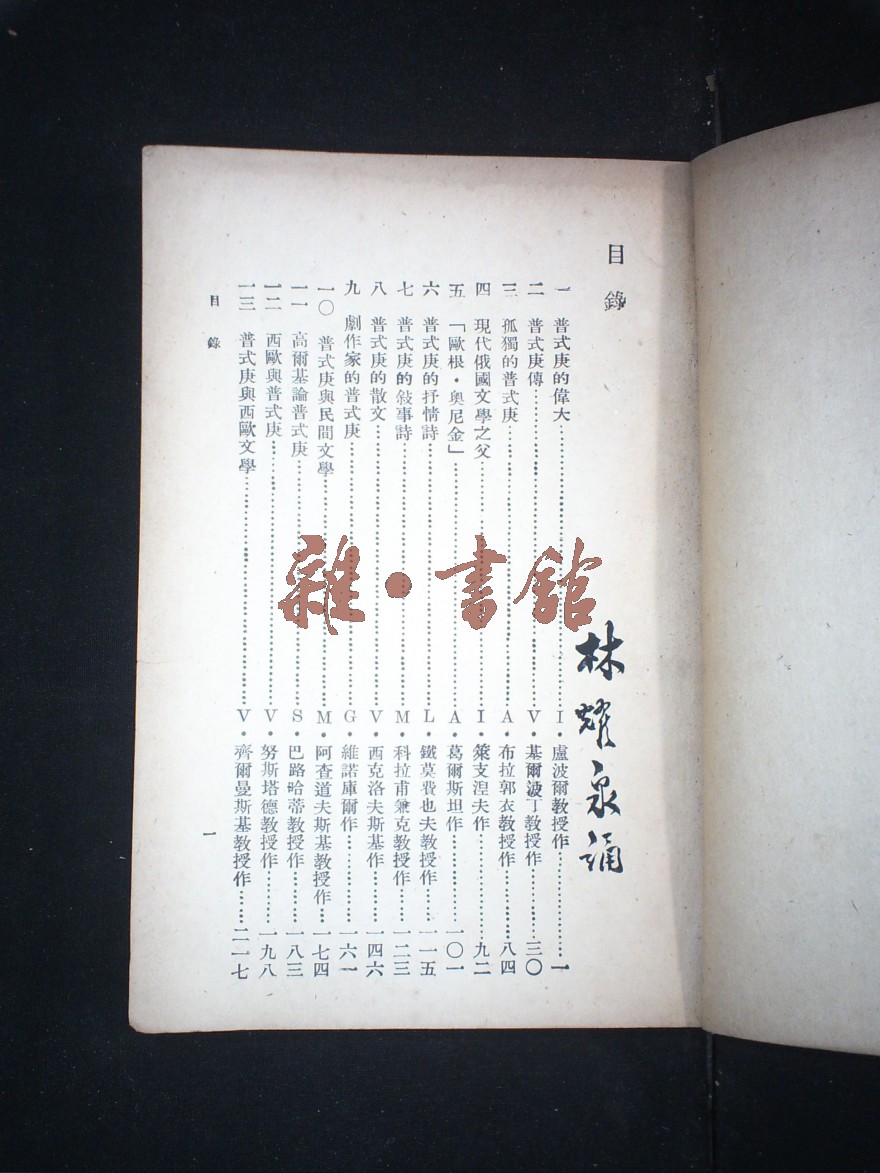 目錄
一 普式庚的偉大……I·盧波爾教授作……一
二 普式庚傳……V·基爾波丁教授作……三〇
三 孤獨的普式庚……A·布拉郭衣教授作……八四
四 現代俄國文學之父……I·萊支湼夫作……九二
五 「歐根·奧尼金」……A·葛爾斯坦作……一〇一
六 普式庚的抒情詩……L·鐵莫費也夫教授作……一一五
七 普式庚的敍事詩……M·科拉甫兼克教授作……一二三
八 普式庚的散文……V·西克洛夫斯基作……一四六
九 劇作家的普式庚……G·維諾庫爾作……一六一
一〇 普式庚與民間文學……M·阿查道夫斯基教授作……一七四
一一 高爾基論普式庚……S·巴路哈蒂教授作……一八三
一二 西歐與普式庚……V·努斯塔德教授作……一九八
一三 普式庚與西歐文學……V·齊爾曼斯基教授作……二一七
目錄
一
林耀泉誦
雜·書館